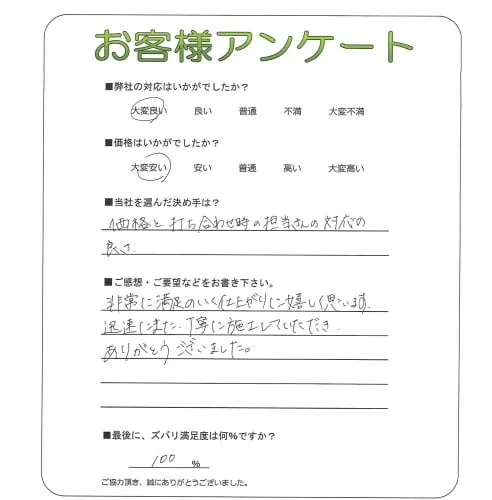 お客様アンケート
■弊社の対応はいかがでしたか？
大変良い 良い 普通 不満 大変不満
■価格はいかがでしたか？
大変安い 安い 普通 高い 大変高い
■当社を選んだ決め手は？
価格と打ち合わせ時の担当さんの対応の
良さ
■ご感想・ご要望などをお書き下さい。
非常に満足のいく仕上がりに嬉しく思います。
迅速にまた、丁寧に施工していただき
ありがとうございました。
■最後に、ズバリ満足度は何％ですか？
100 ％
ご協力頂き、誠にありがとうございました。